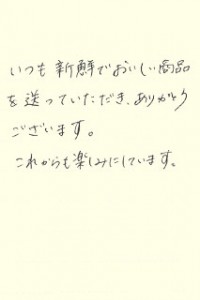 いつも新鮮でおいしい商品
を送っていただき、ありがとう
ございます。
これからも楽しみにしています。